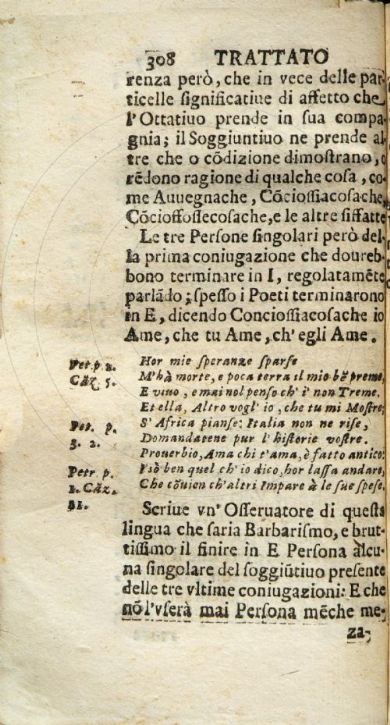 308 TRATTATO
renza però, che in vece delle par
ticelle significatiue di affetto che
l'Ottatiuo prende in sua compa
gnia; il Soggiuntiuo ne prende al
tre che o cōdizione dimostrano, o
rēdono ragione di qualche cosa, co
me Auuegnache, Cōciossiacosache,
Cōciofossecosache, e le altre siffatte
Le tre Persone singolari però del
la prima coniugazione che doureb-
bono terminare in I, regolatamēte
parlādo; spesso i Poeti terminarono
in E, dicendo Conciossiacosache io
Ame, che tu Ame, ch'egli Ame.
Pet p. 2. Hor mie speranze sparse
Cāz. 5. M'hà morte, e poca terra il mio bē preme,
E viuo, e mai nol penso ch' i' non Treme.
Et ella, Altro vogl' io, che tu mi Mostre,
Pet. p. S' Africa pianse: Italia non ne rise,
3. 2. Domandatene pur l' historie vostre.
Prouerbio, Ama chi t'ama, è fatto antico:
Petr p. I sò ben quel ch' io dico, hor lassa andare,
1. Cāz. Che cōuien ch'altri Impare à le sue spese.
11.
Scriue vn' Osseruatore di questa
lingua che saria Barbarismo, e brut-
tissimo il finire in E Persona alcu-
na singolare del soggiūtiuo presente
delle tre vltime coniugazioni: E che
nō l'vserà mai Persona mēche me
za-